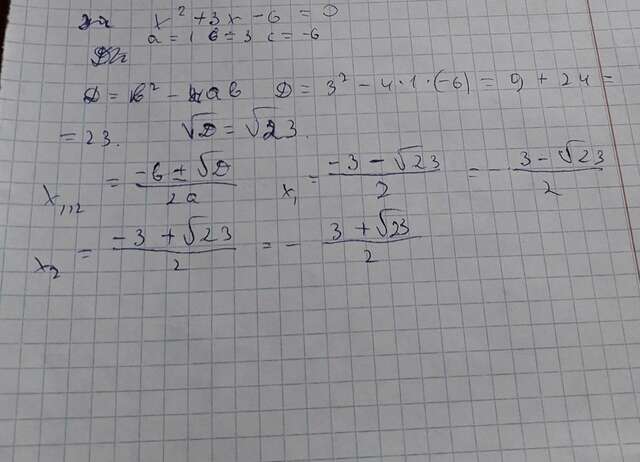 x² + 3x - 6 = 0
a = 1 b = 3 c = -6
D = b² - 4ab D = 3² - 4·1·(-6) = 9 + 24 =
= 23. √D = √23.
x₁,₂ = (-b ± √D)/(2a) x₁ = (-3 - √23)/2 = - (3 - √23)/2
x₂ = (-3 + √23)/2 = - (3 + √23)/2